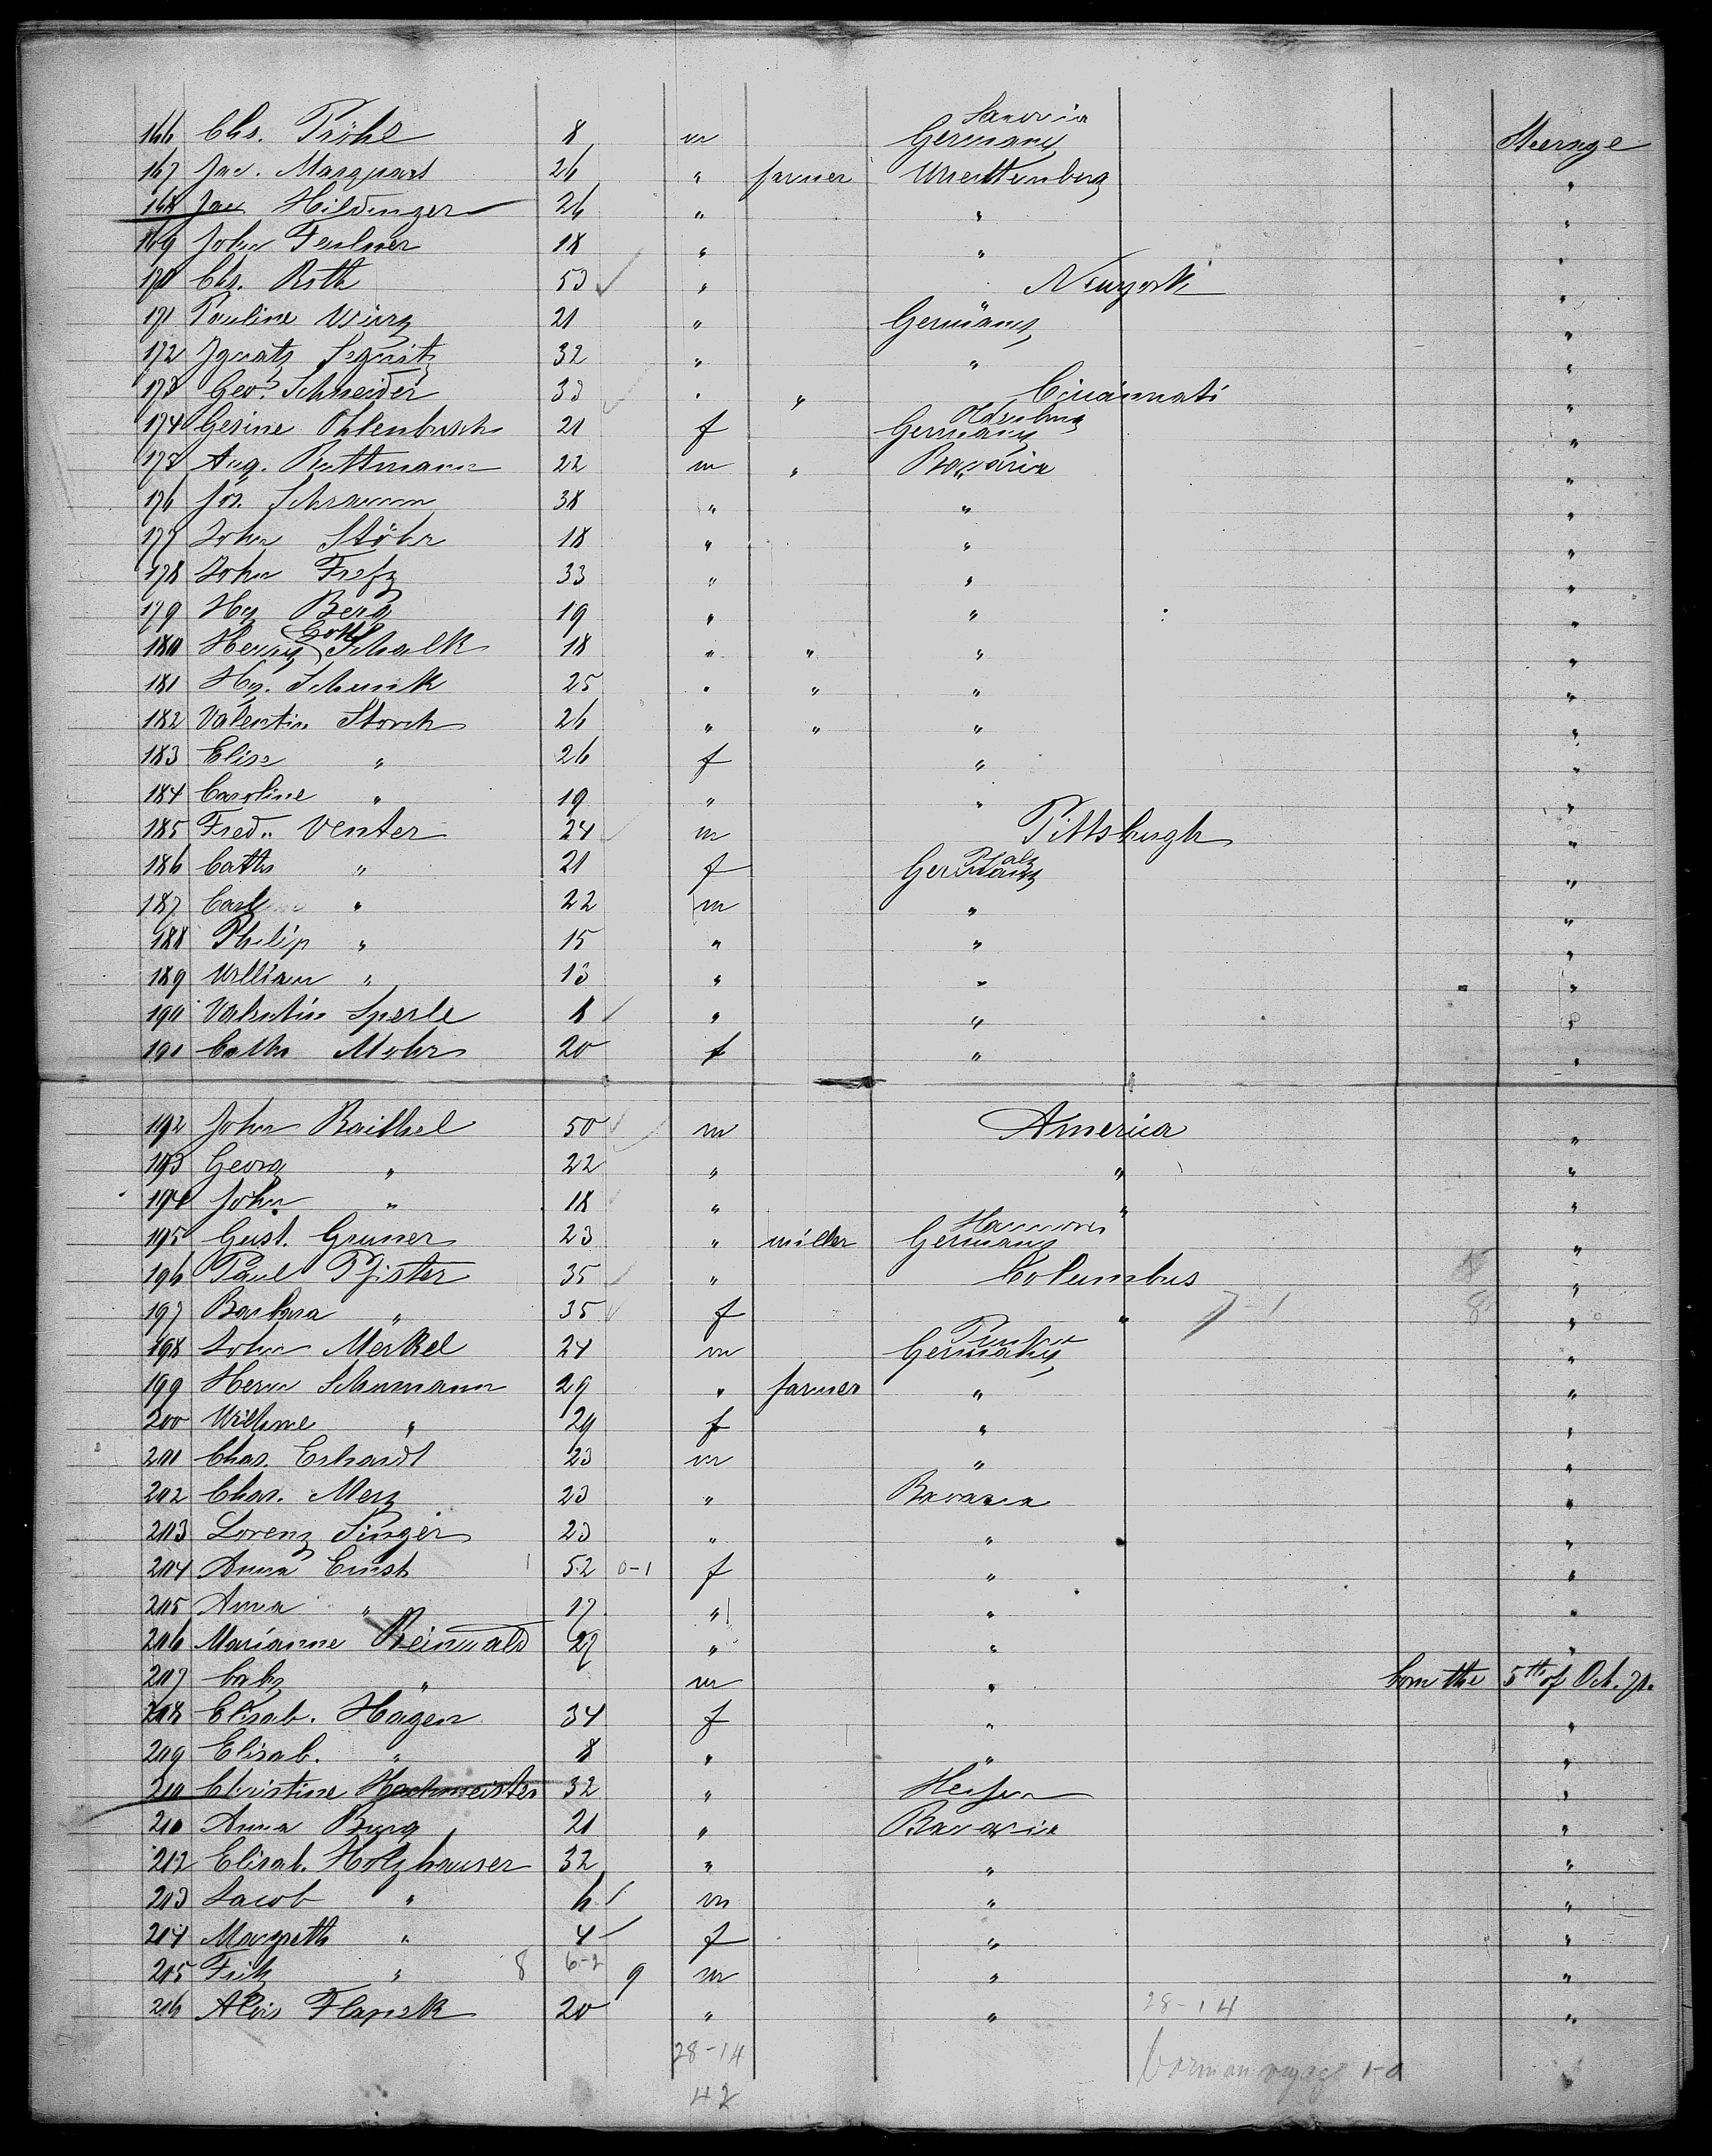 166 Chs. Pröhl 8 m Germany Steerage
167 Jac. Marquart 26 " farmer Wuerttemberg "
168 Jac Hildinger 26 " " "
169 John Feulner 18 " " "
170 Chs. Roth 53 " Newyork "
171 Pauline Würz 21 " Germany "
172 Ignatz 32 " " "
173 Geo. Schneider 33 " " Cincinnati "
Oldenburg
174 Gesine Ohlenbusch 21 f Germany "
175 Aug. Ruttmann 22 m " Bavaria "
176 Jos. Schramm 38 " " "
177 John Stöhr 18 " " "
178 John 33 " " "
179 Hy Berg 19 " " "
180 Henry Gottl Schalk 18 " " " "
181 Hy. Schunk 25 " " " "
182 Valentin Storch 26 " " " "
183 Elise " 26 f " "
184 Caroline " 19 " " "
185 Fred. Venter 24 m Pittsburgh "
Pfalz
186 Cath " 21 f Germany "
187 Carl " 22 m " "
188 Philip " 15 " " "
189 William " 13 " " "
190 Valentin Sperle 8 " " "
191 Cath Mohr 20 f " "
192 John Raithel 50 m America "
193 Georg " 22 " " "
194 John " 18 " " "
Hannover
195 Gust. Gruner 23 " miller Germany "
196 Paul Pfister 35 " Columbus "
197 Barbara " 35 f " 7-1 8 "
198 John Merkel 24 m Germany "
199 Herm Schumann 29 " farmer " "
200 Wilhme " 29 f " "
201 Chas. Erhardt 23 m " "
202 Chas. Merz 23 " Bavaria "
203 Lorenz Singer 23 " " "
204 Anna Ernst 1 52 0-1 f " "
205 Anna " 17 " " "
206 Marianne Reinwald 27 " " "
207 baby " m " born the 5th of Oct. 71.
208 Elisab. Hagen 34 f " "
209 Elisab. " 8 " " "
210 Christine Hachmeister 32 " Hessen "
210 Anna Burg 21 " Bavaria "
212 Elisab. Holzhauser 32 " " "
213 Jacob " 6 m " "
214 Margreth " 4 f " "
215 Fritz " 8 6-2 9 m " "
216 Alois Flapsk 20 " " 28-14 "
28-14
42